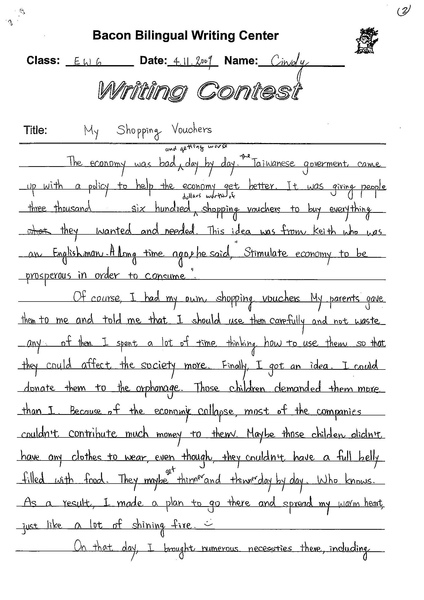 (2)
Bacon Bilingual Writing Center
Class: EW6 Date: 4.11.2009 Name: Cindy
Writing Contest
Title: My Shopping Vouchers
and getting worse
The economy was bad day by day. the Taiwanese goverment came
up with a policy to help the economy get better. It was giving people
dollars worth of
three thousand six hundred shopping vouchers to buy everything
they wanted and needed. This idea was from Keith who was
an Englishman. A long time ago, he said, "Stimulate economy to be
prosperous in order to consume".
Of course, I had my own shopping vouchers. My parents gave
them to me and told me that I should use them carfully and not waste
any of them. I spent a lot of time thinking how to use them so that
they could affect the society more. Finally, I got an idea. I could
donate them to the orphanage. Those children demanded them more
than I. Because of the economic collapse, most of the companies
couldn't contribute much money to them. Maybe those childen didn't
have any clothes to wear, even though, they couldn't have a full belly
get
filled with food. They maybe thinner and thinner day by day. Who knows.
As a result, I made a plan to go there and spread my warm heart,
just like a lot of shining fire.
On that day, I brought numerous necessities there, including